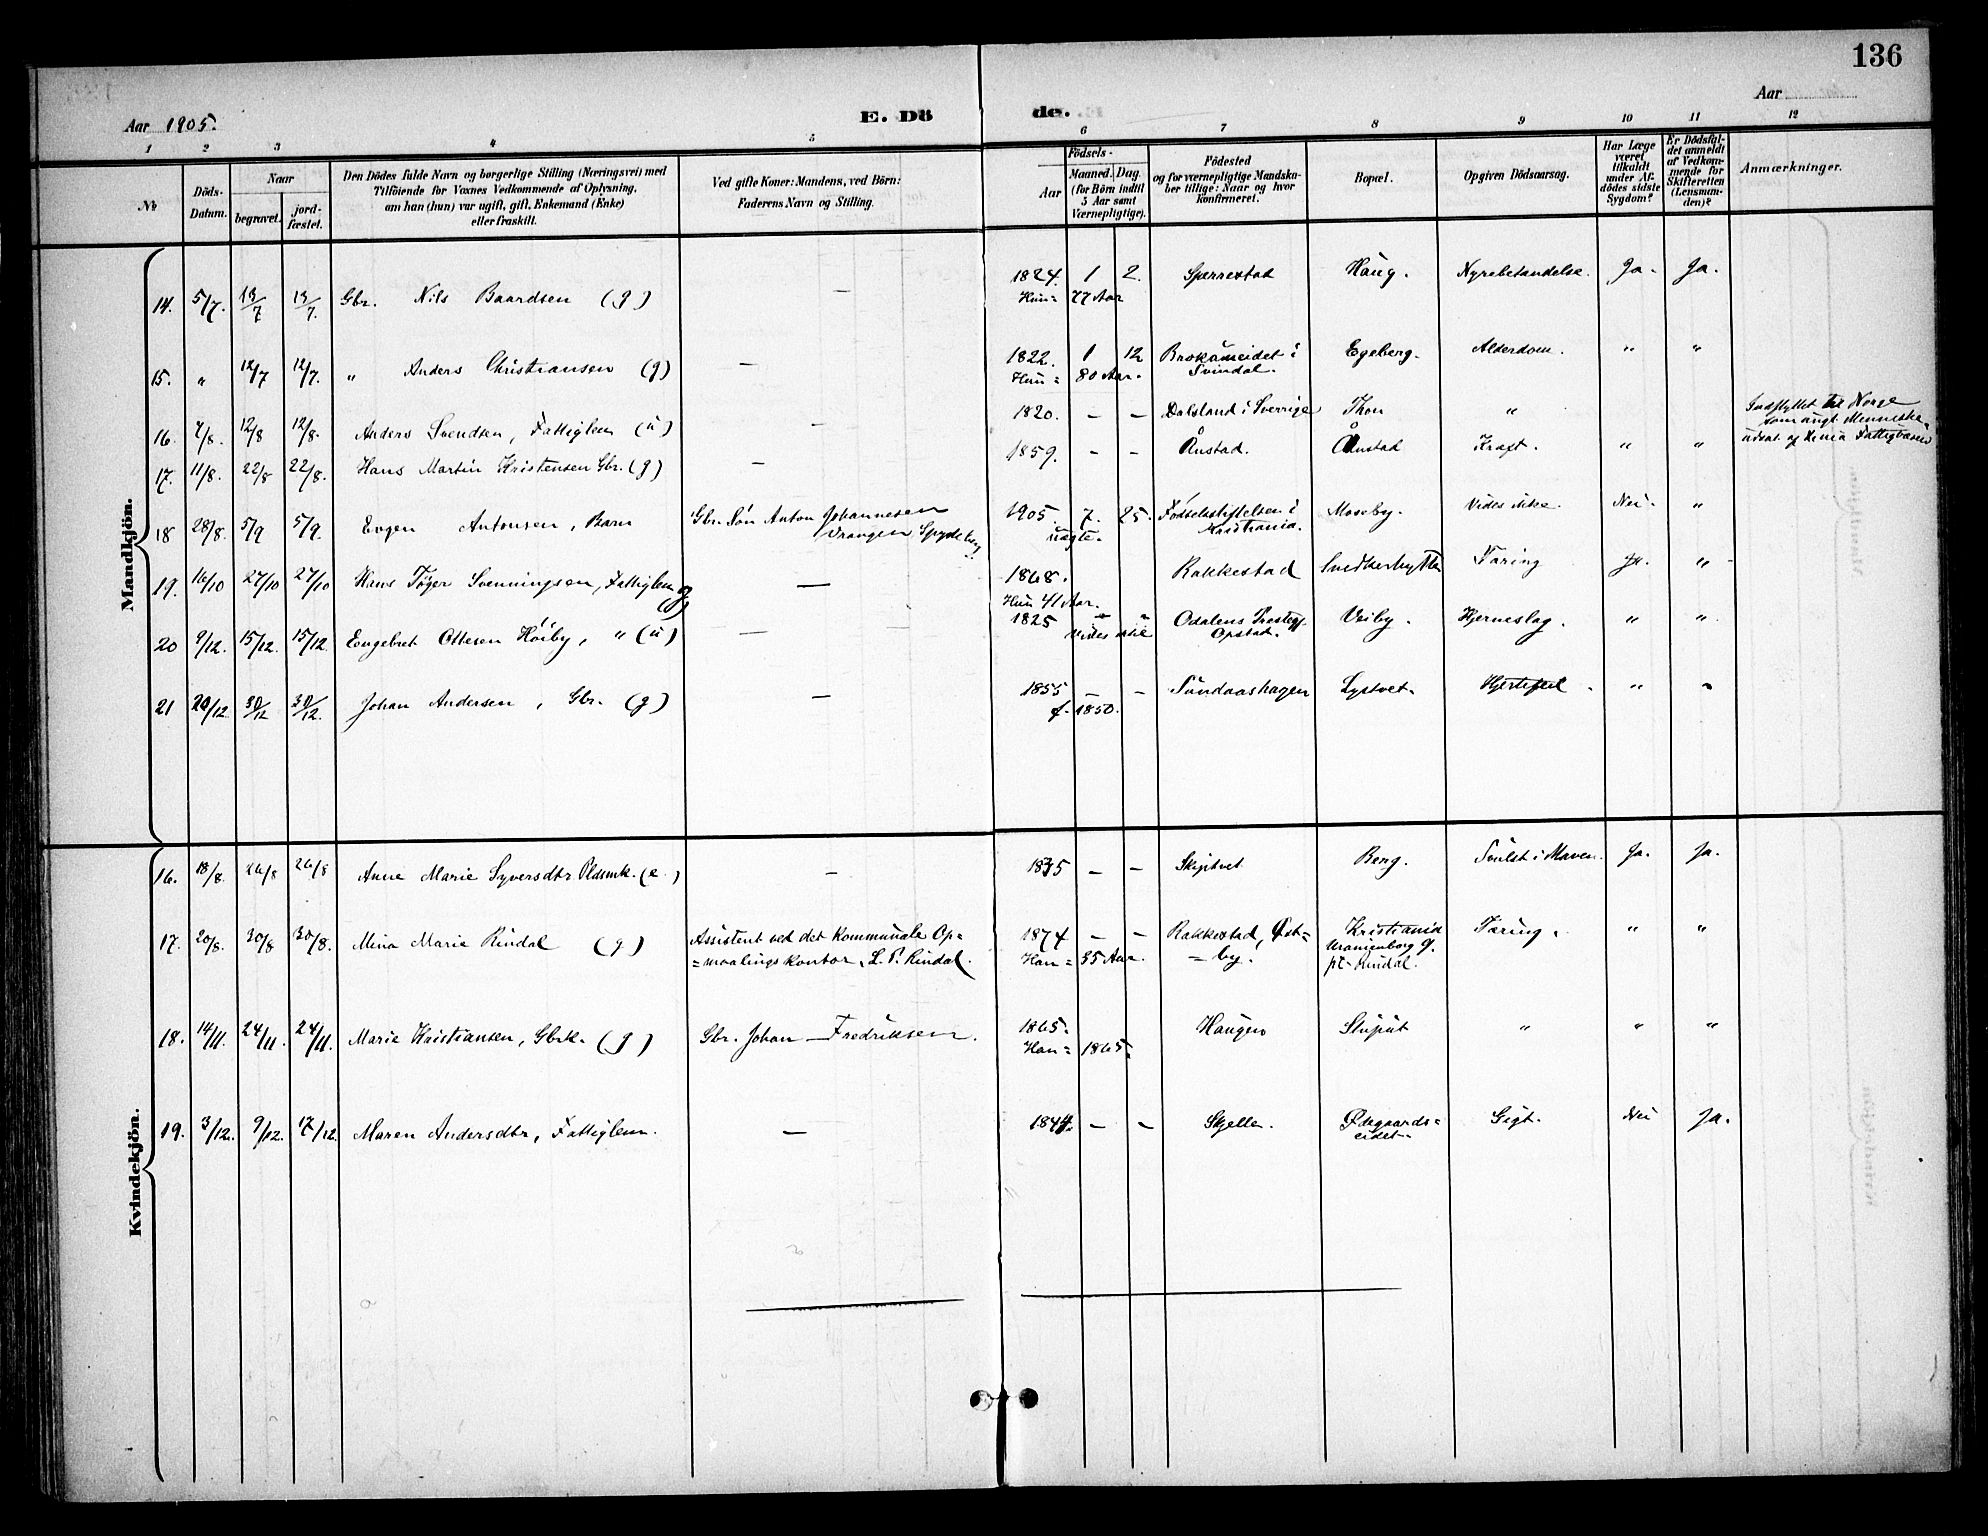 136
Aar 1905.
E. Dö de.
Aar
1 2 3 4 5 6 7 8 9 10 11 12
No
Döds-Datum.
Naar
begravet.
jord-fæstet.
Den Dödes fulde Navn og borgerlige Stilling (Næringsvei) med
Tilföiende for Voxnes Vedkommende af Oplysning,
om han (hun) var ugift, gift, Enkemand (Enke)
eller fraskilt.
Ved gifte Koner: Mandens, ved Börn:
Faderens Navn og Stilling.
Födsels-
Aar
Maaned. Dag.
(for Börn indtil
5 Aar samt
Værnepligtige).
Födested
og for værnepligtige Mandska-
ber tillige: Naar og hvor
konfirmeret.
Bopæl.
Opgiven Dödsaarsag.
Har Læge
været
tilkaldt
under Af-
dödes sidste
Sygdom?
Er Dödsfal-
det anmeldt
af Vedkom-
mende for
Skifteretten
(Lensman-
den)?
Anmærkninger.
Mandkjön.
14. 5/7. 13/7 13/7. Gbr. Nils Baardsen (g) — 1824. 1 2. Sperrestad Haug. Nyrebetændelse. Ja. Ja.
Hun = 77 Aar
15. " 12/7 12/7. " Anders Christiansen (g) — 1822. 1 12 i Egeberg. Alderdom. " "
Hun = 80 Aar. Svindal.
16. 7/8. 12/8 12/8. Anders Svendsen, Fattiglem (u) — 1820. — — Dalsland i Sverrige Thon "
Indflyttet til Norge
som ungt Menneske
17. 11/8. 22/8 22/8. Hans Martin Kristensen Gbr. (g) — 1859. — — Ånstad. Ånstad Kræft. " "
18 28/8. 5/9 5/9. Evgen Antonsen, Barn Gbr. Søn Anton Johannesen 1905. 7. 25. Fødselsstiftelsen i Moseby. Vides ikke. Nei. "
Vrangen, Spydeberg uægte. Kristiania.
19. 16/10 27/10 27/10 Hans Tøger Svenningsen, Fattiglem (g) — 1868. Rakkestad Tæring Ja. "
Hun 41 Aar.
20 9/12. 15/12. 15/12 Engebret Ottesen Höiby, " (u) — 1825 " " Odalens Prestegj. Veiby. Hjerneslag. " "
Vides ikke Opstad.
21 20/12. 30/12 30/12. Johan Andersen, Gbr. (g) — 1855 — — Sundaashagen Lystvet. Hjertefeil. " "
f. 1850.
Kvindekjön.
16. 18/8. 26/8 26/8 Anne Marie Syversdtr Pldsmk. (e.) — 1835 — — Skiptvet Berg. Svulst i Maven. Ja. Ja.
17. 20/8. 30/8 30/8. Mina Marie Rindal (g) Assistent ved det Kommunale Op= 1874 — — Rakkestad, Øst= Kristiania Tæring. " "
=maalingskontor, L. P. Rindal. Han = 35 Aar. =by. Uranienborg g.
pt. Rindal.
18. 14/11. 24/11. 24/11. Marie Kristiansen, Gbrk. (g) Gbr. Johan — Fredriksen. 1865. Haugen " " "
Han = 1865.
19. 3/12. 9/12. 17/12. Maren Andersdtr, Fattiglem. — 1844. — — Skjelle. Ødegaards= Gigt. Nei Ja.
eidet.